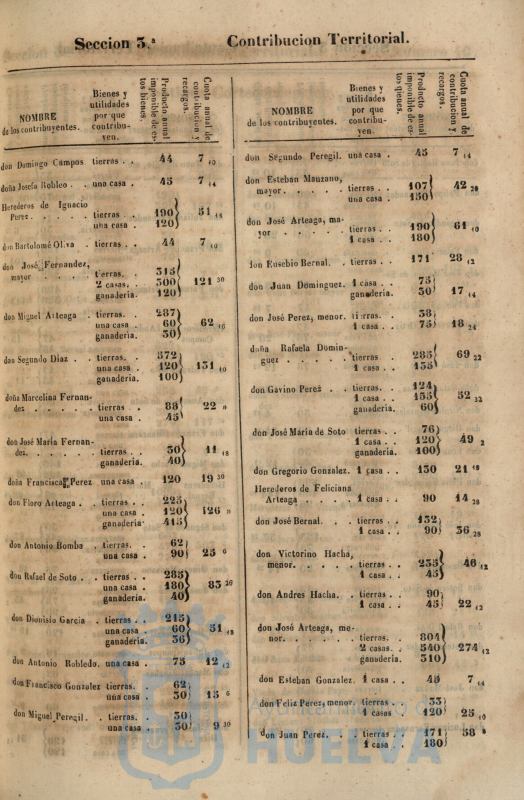 Seccion 3.ª Contribucion Territorial.
NOMBRE de los contribuyentes.
Bienes y utilidades por que contribuyen.
Producto anual imponible de estos bienes.
Cuota anual de contribucion y recargos.
don Domingo Campos tierras . . 44 7 10
doña Josefa Robleo . . una casa . 45 7 14
Herederos de Ignacio
Perez . . . . . tierras . . 190
una casa . 120 } 51 18
don Bartolomé Oliva . tierras . . 44 7 10
don José Fernandez,
mayor . . . . . tierras. . 315
2 casas. . 300
ganaderia. 120 } 121 30
don Miguel Arteaga . tierras. . 287
una casa . 60
ganaderia. 30 } 62 16
don Segundo Diaz . . tierras. . 572
una casa . 120
ganaderia. 100 } 131 10
doña Marcelina Fernan-
dez . . . . . tierras . . 88
una casa . 45 } 22 »
don José Maria Fernan-
dez. . . . . . tierras . . 30
ganaderia. 40 } 11 18
doña Francisca Perez una casa . 120 19 30
don Floro Arteaga . . tierras . . 225
una casa . 120
ganaderia 415 } 126 »
don Antonio Bomba . tierras. . 62
una casa . 90 } 25 6
don Rafael de Soto . . tierras . . 285
una casa . 180
ganaderia. 40 } 83 26
don Dionisio Garcia . tierras . . 215
una casa . 60
ganaderia. 36 } 51 18
don Antonio Robledo. una casa . 75 12 12
don Francisco Gonzalez tierras. . 62
una casa . 30 } 15 6
don Miguel Peregil. . tierras. . 30
una casa . 30 } 9 30
NOMBRE de los contribuyentes.
Bienes y utilidades por que contribuyen.
Producto anual imponible de estos bienes.
Cuota anual de contribucion y recargos.
don Segundo Peregil. una casa . 45 7 14
don Esteban Manzano,
mayor. . . . . tierras . . 107
una casa . 150 } 42 20
don José Arteaga, ma-
yor . . . . . tierras . . 190
1 casa . . 180 } 61 10
don Eusebio Bernal. . tierras . . 171 28 12
don Juan Dominguez. 1 casa . . 75
ganaderia. 30 } 17 14
don José Perez, menor. tierras. . 38
1 casa . . 75 } 18 24
doña Rafaela Domin-
guez . . . . . tierras . . 285
1 casa . . 135 } 69 22
don Gavino Perez . . tierras. . 124
1 casa . . 135
ganaderia. 60 } 52 32
don José Maria de Soto tierras . . 76
1 casa . . 120
ganaderia. 100 } 49 2
don Gregorio Gonzalez. 1 casa . . 130 21 18
Herederos de Feliciana
Arteaga . . . . 1 casa . . 90 14 28
don José Bernal. . . tierras . . 132
1 casa . . 90 } 36 28
don Victorino Hacha,
menor. . . . . tierras . . 235
1 casa . . 45 } 46 12
don Andres Hacha. . tierras . . 90
1 casa . . 45 } 22 12
don José Arteaga, me-
nor. . . . . . tierras. . 804
2 casas. . 540
ganaderia. 310 } 274 12
don Esteban Gonzalez 1 casa . . 45 7 14
don Feliz Perez, menor. tierras . . 33
1 casas 120 } 25 10
don Juan Perez. . . tierras . . 171
1 casa . . 180 } 58 8
Ayuntamiento de
HUELVA